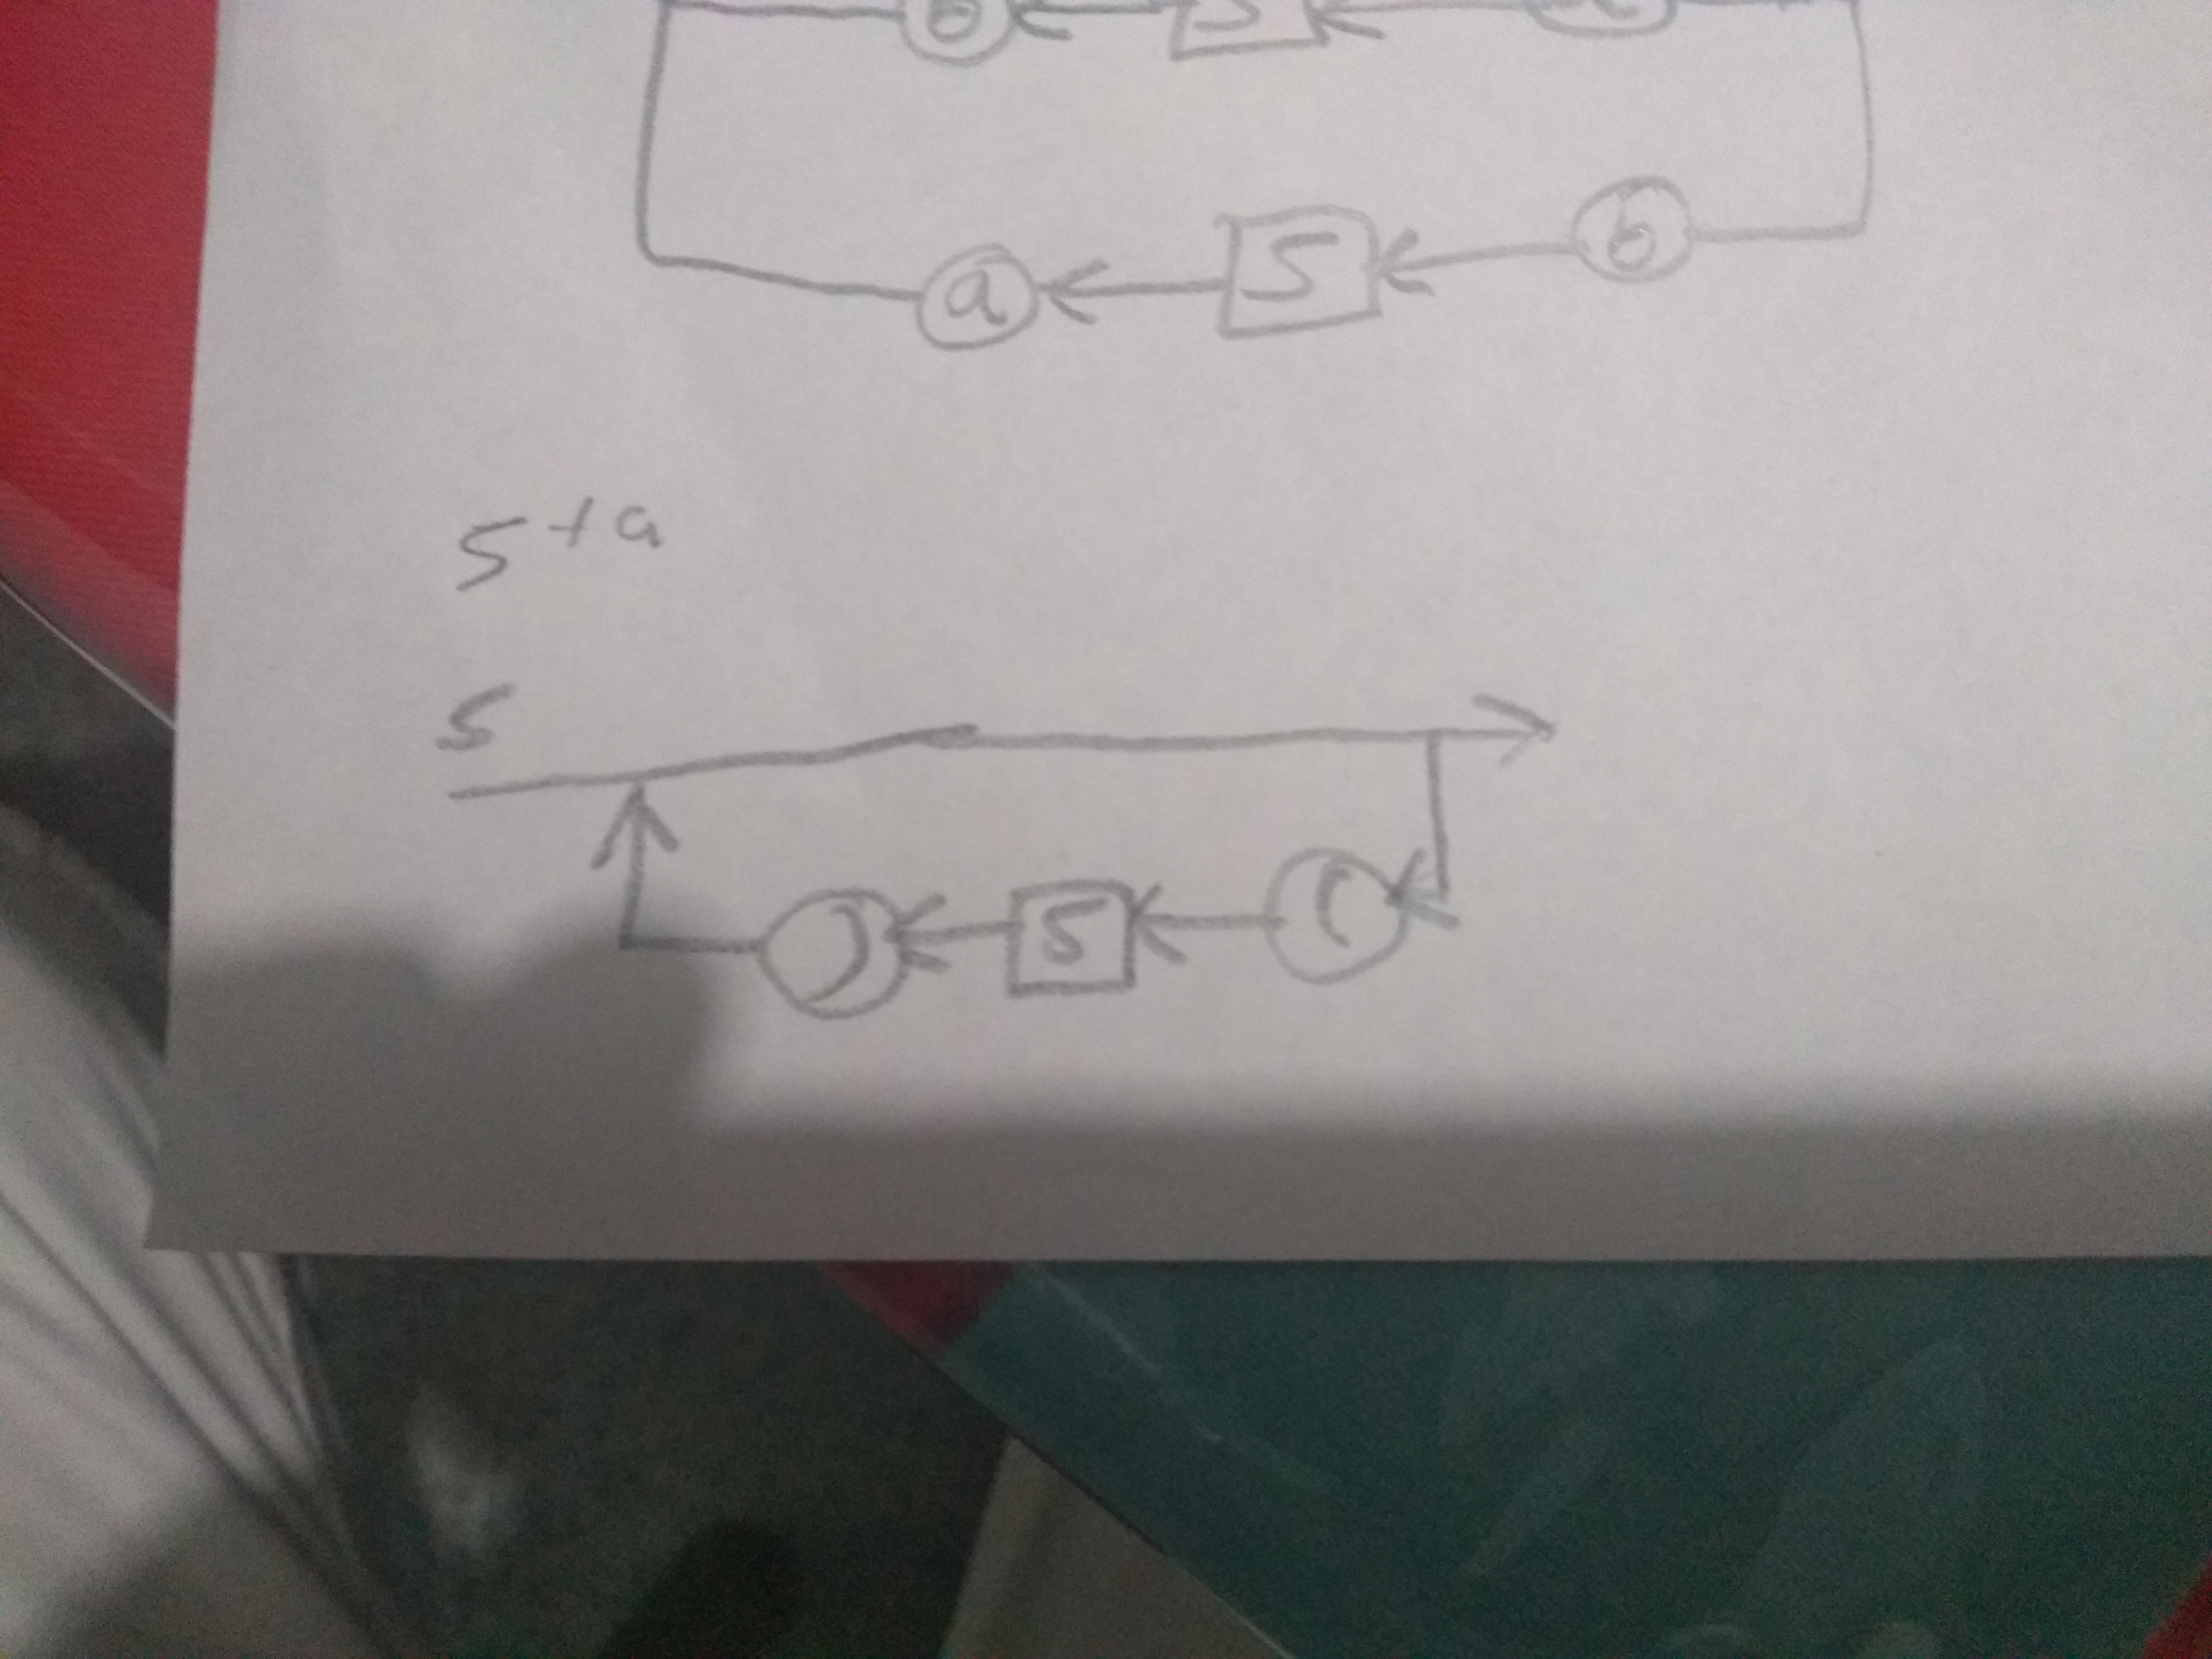 a S b
S + a
S
) S (